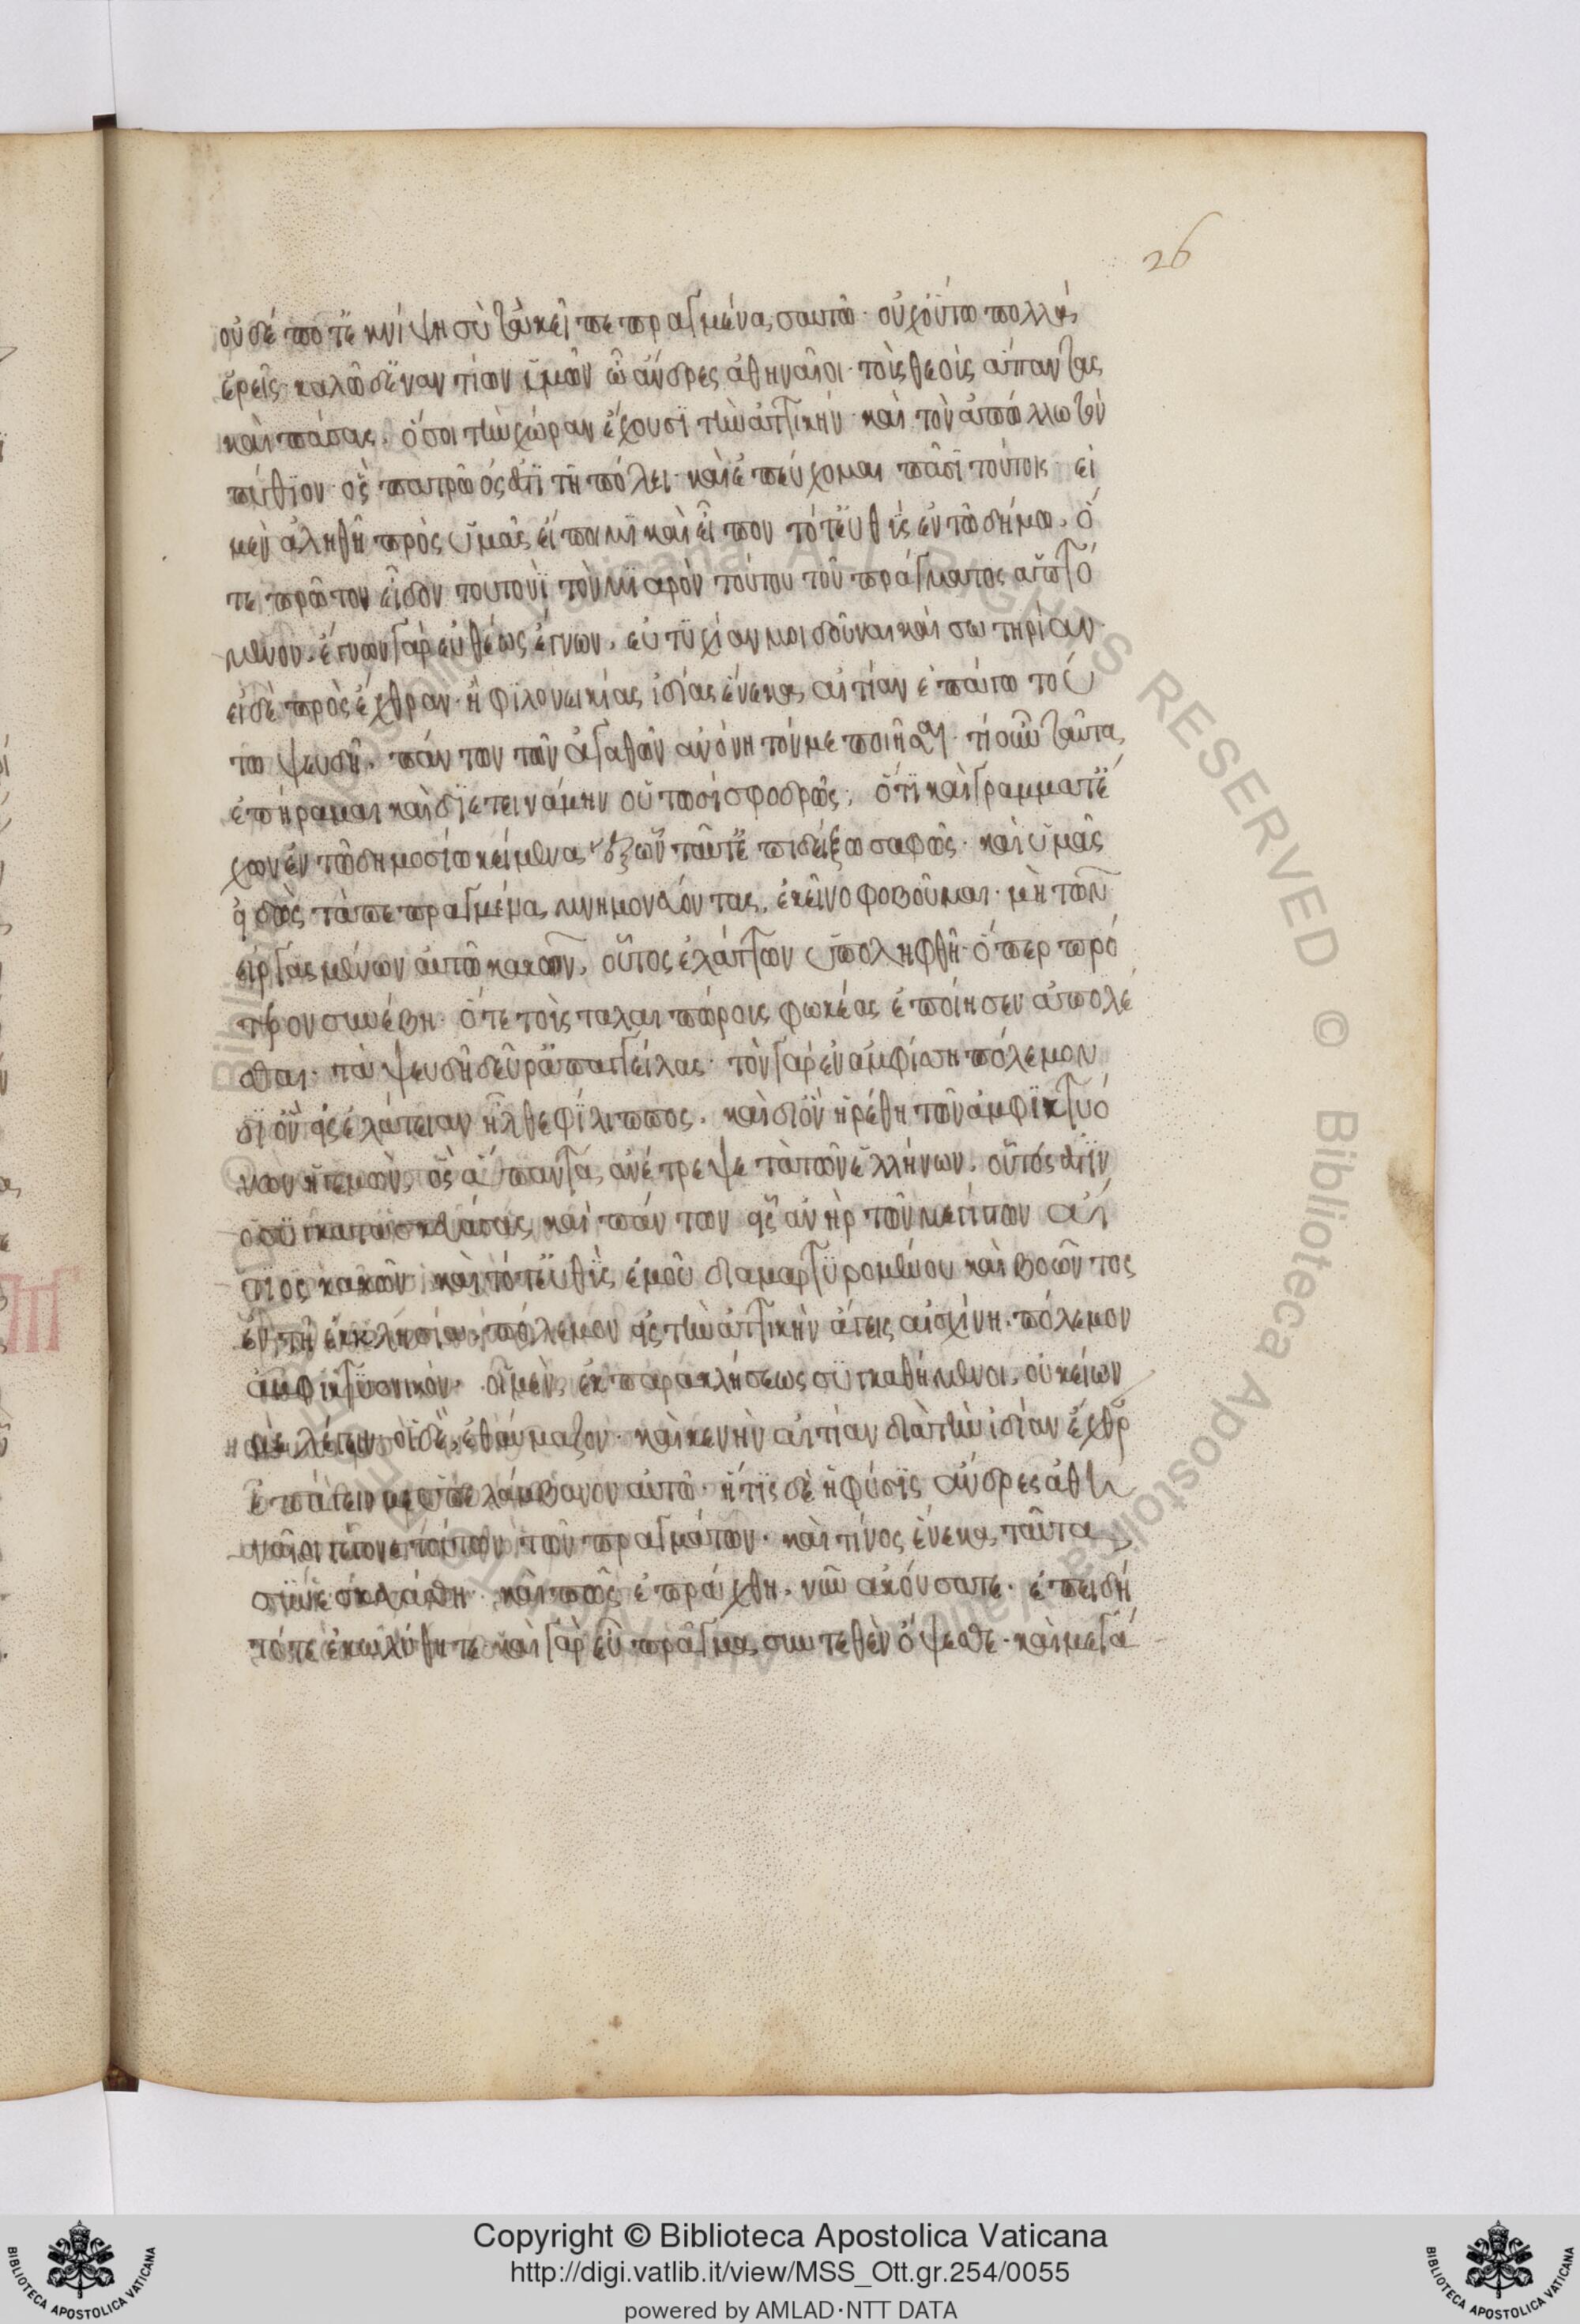 26
οὐδέποτ' ἐκνίψῃ σὺ τἀκεῖ πεπραγμένα σαυτῶ· οὐχ οὕτω πολλὰ
ἐρεῖς· καλῶ δ' ἐναντίον ὑμῶν ὦ ἄνδρες ἀθηναῖοι· τοὺς θεοὺς ἅπαντας
καὶ πάσας, ὅσοι τὴν χώραν ἔχουσι τὴν ἀττικήν· καὶ τὸν ἀπόλλω τὸν
πύθιον· ὃς πατρῶός ἐστι τῇ πόλει· καὶ ἐπεύχομαι πᾶσι τούτοις· εἰ
μὲν ἀληθῆ πρὸς ὑμᾶς εἴποιμι καὶ εἶπον τότ' εὐθὺς ἐν τῶ δήμω, ὅ
τε πρῶτον εἶδον τουτονὶ τὸν μιαρὸν τούτου τοῦ πράγματος ἁπτό
μενον, ἔγνων γὰρ εὐθέως ἔγνων, εὐτυχίαν μοι δοῦναι καὶ σωτηρίαν·
εἰ δὲ πρὸς ἔχθραν· ἢ φιλονεικίας ἰδίας ἕνεκα αἰτίαν ἐπάγω τού
τω ψευδῆ, πάντων τῶν ἀγαθῶν ἀνόνητόν με ποιῆσαι· τί οὖν ταῦτα
ἐπήραμαι καὶ διετεινάμην οὑτωσὶ σφοδρῶς; ὅτι καὶ γράμματ' ἔ
χων ἐν τῶ δημοσίω κείμενα ἐξ ὧν ταῦτ' ἐπιδείξω σαφῶς· καὶ ὑμᾶς
εἰδὼς τὰ πεπραγμένα μνημονεύοντας, ἐκεῖνο φοβοῦμαι· μὴ τῶν
εἰργασμένων αὐτῶ κακῶν, οὗτος ἐλάττων ὑποληφθῇ· ὅπερ πρό
τερον συνέβη· ὅτε τοὺς ταλαιπώρους φωκέας ἐποίησεν ἀπολέ
σθαι· τὰ ψευδῆ δεῦρ' ἀπαγγείλας· τὸν γὰρ ἐν ἀμφίσσῃ πόλεμον
δι' ὃν εἰς ἐλάτειαν ἦλθε φίλιππος, καὶ δι' ὃν ᾑρέθη τῶν ἀμφικτυό
νων ἡγεμὼν, ὃς ἅπαντα ἀνέτρεψε τὰ τῶν ἑλλήνων, οὗτός ἐστιν
ὁ συγκατασκευάσας, καὶ πάντων εἷς ἀνὴρ τῶν μεγίστων αἴ
τιος κακῶν· καὶ τότ' εὐθὺς ἐμοῦ διαμαρτυρομένου καὶ βοῶντος
ἐν τῇ ἐκκλησία, πόλεμον εἰς τὴν ἀττικὴν ἄγεις αἰσχίνη· πόλεμον
ἀμφικτυονικόν· οἱ μὲν, ἐκ παρακλήσεως συγκαθήμενοι, οὐκ εἴων
με λέγειν· οἱ δὲ, ἐθαύμαζον· καὶ κενὴν αἰτίαν διὰ τὴν ἰδίαν ἔχθρ
ἐπάγειν με ὑπελάμβανον αὐτῶ· ἥτις δὲ ἡ φύσις ἄνδρες ἀθη
ναῖοι γέγονε τούτων τῶν πραγμάτων· καὶ τίνος ἕνεκα ταῦτα
συνεσκευάσθη· καὶ πῶς ἐπράχθη, νῦν ἀκούσατε· ἐπειδὴ
τότε ἐκωλύθητε· καὶ γὰρ εὖ πρᾶγμα συντεθὲν ὄψεσθε· καὶ μεγά
Copyright © Biblioteca Apostolica Vaticana
http://digi.vatlib.it/view/MSS_Ott.gr.254/0055
powered by AMLAD·NTT DATA